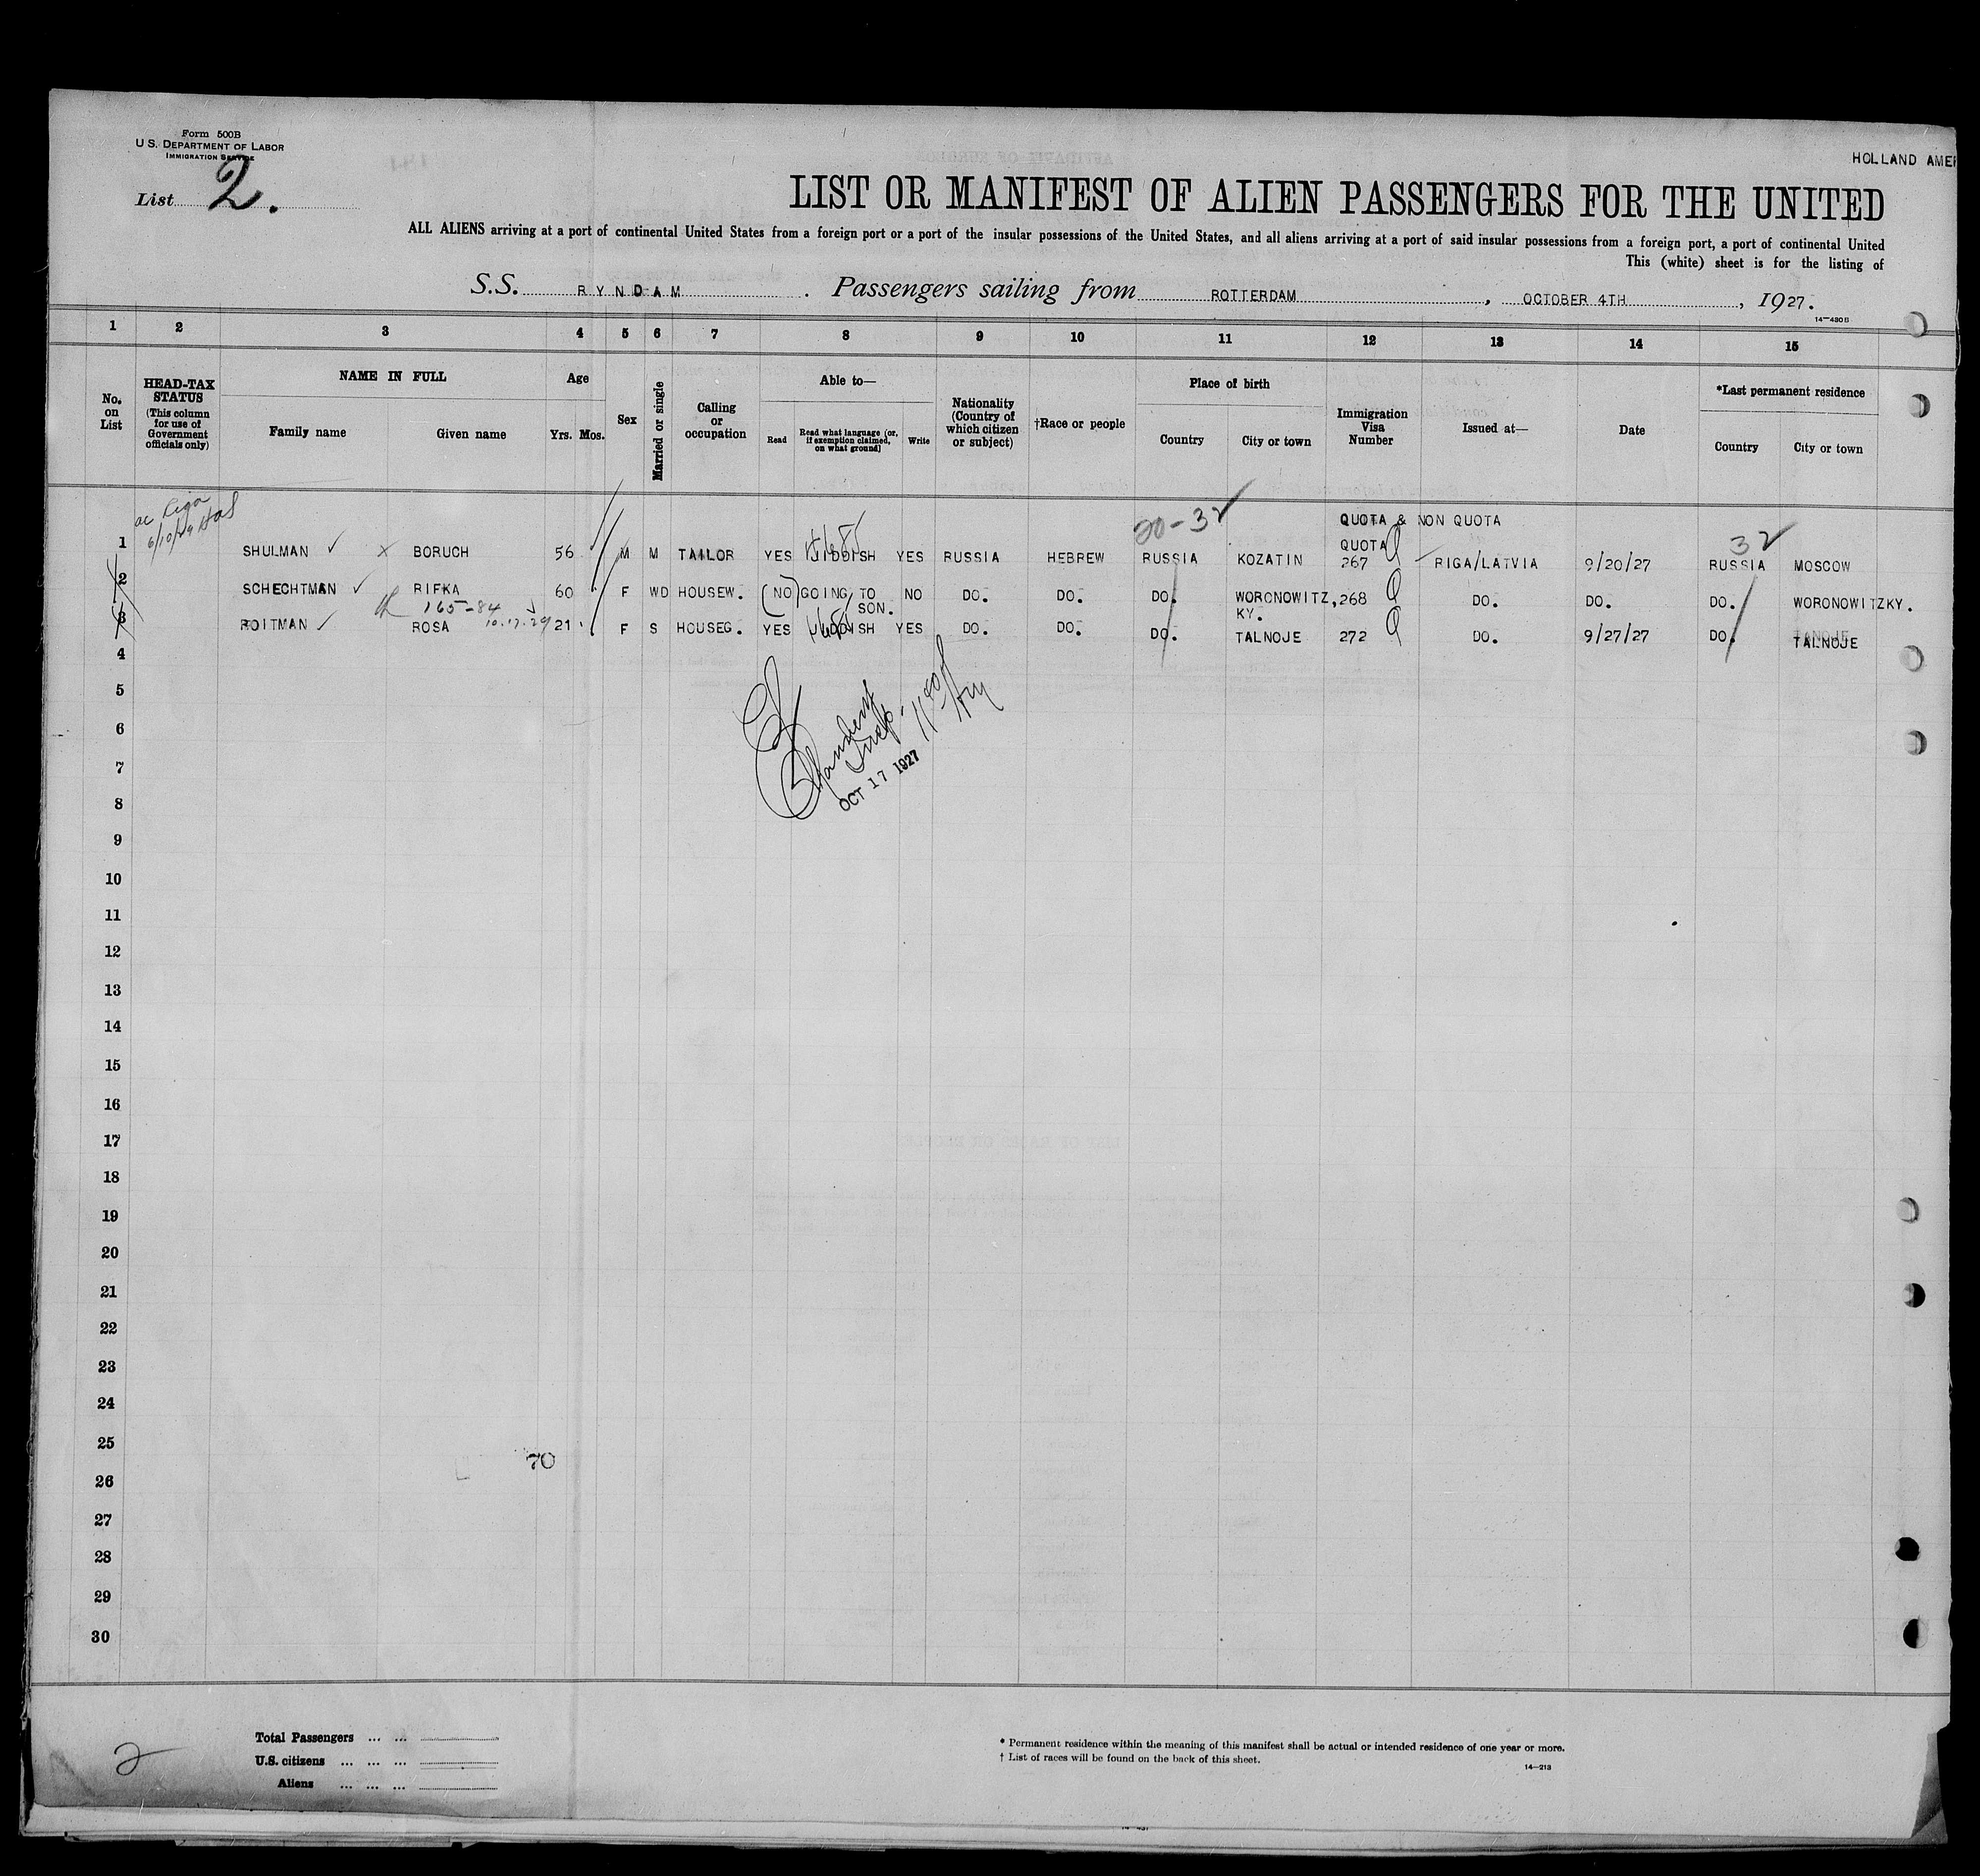 Form 500B
U. S. DEPARTMENT OF LABOR
IMMIGRATION SERVICE
List 2.
HOLLAND AMER
LIST OR MANIFEST OF ALIEN PASSENGERS FOR THE UNITED
ALL ALIENS arriving at a port of continental United States from a foreign port or a port of the insular possessions of the United States, and all aliens arriving at a port of said insular possessions from a foreign port, a port of continental United
This (white) sheet is for the listing of
S.S. RYNDAM. Passengers sailing from ROTTERDAM, OCTOBER 4TH, 1927.
14—430 B
1 2 3 4 5 6 7 8 9 10 11 12 13 14 15
No. on List
HEAD-TAX STATUS (This column for use of Government officials only)
NAME IN FULL
Family name Given name
Age
Yrs. Mos.
Sex
Married or single
Calling or occupation
Able to—
Read
Read what language (or, if exemption claimed, on what ground)
Write
Nationality (Country of which citizen or subject)
†Race or people
Place of birth
Country City or town
Immigration Visa Number
Issued at—
Date
*Last permanent residence
Country City or town
6/10/29
20-32
QUOTA & NON QUOTA
QUOTA
32
1 SHULMAN ✓ x BORUCH 56 M M TAILOR YES JIDDISH YES RUSSIA HEBREW RUSSIA KOZATIN 267 RIGA/LATVIA 9/20/27 RUSSIA MOSCOW
2 SCHECHTMAN ✓ RIFKA 60 F WD HOUSEW. (NO) GOING TO SON. NO DO. DO. DO. WORONOWITZ,KY. 268 DO. DO. DO. WORONOWITZKY.
165-84 10.17.29
3 ROITMAN ✓ ROSA 21 F S HOUSEG. YES JIDDISH YES DO. DO. DO. TALNOJE 272 DO. 9/27/27 DO. TALNOJE
4
5
6
7
OCT 17 1927
8
9
10
11
12
13
14
15
16
17
18
19
20
21
22
23
24
25
70
26
27
28
29
30
Total Passengers ... ...
U.S. citizens ... ... ...
Aliens ... ... ...
2
* Permanent residence within the meaning of this manifest shall be actual or intended residence of one year or more.
† List of races will be found on the back of this sheet.
14—213